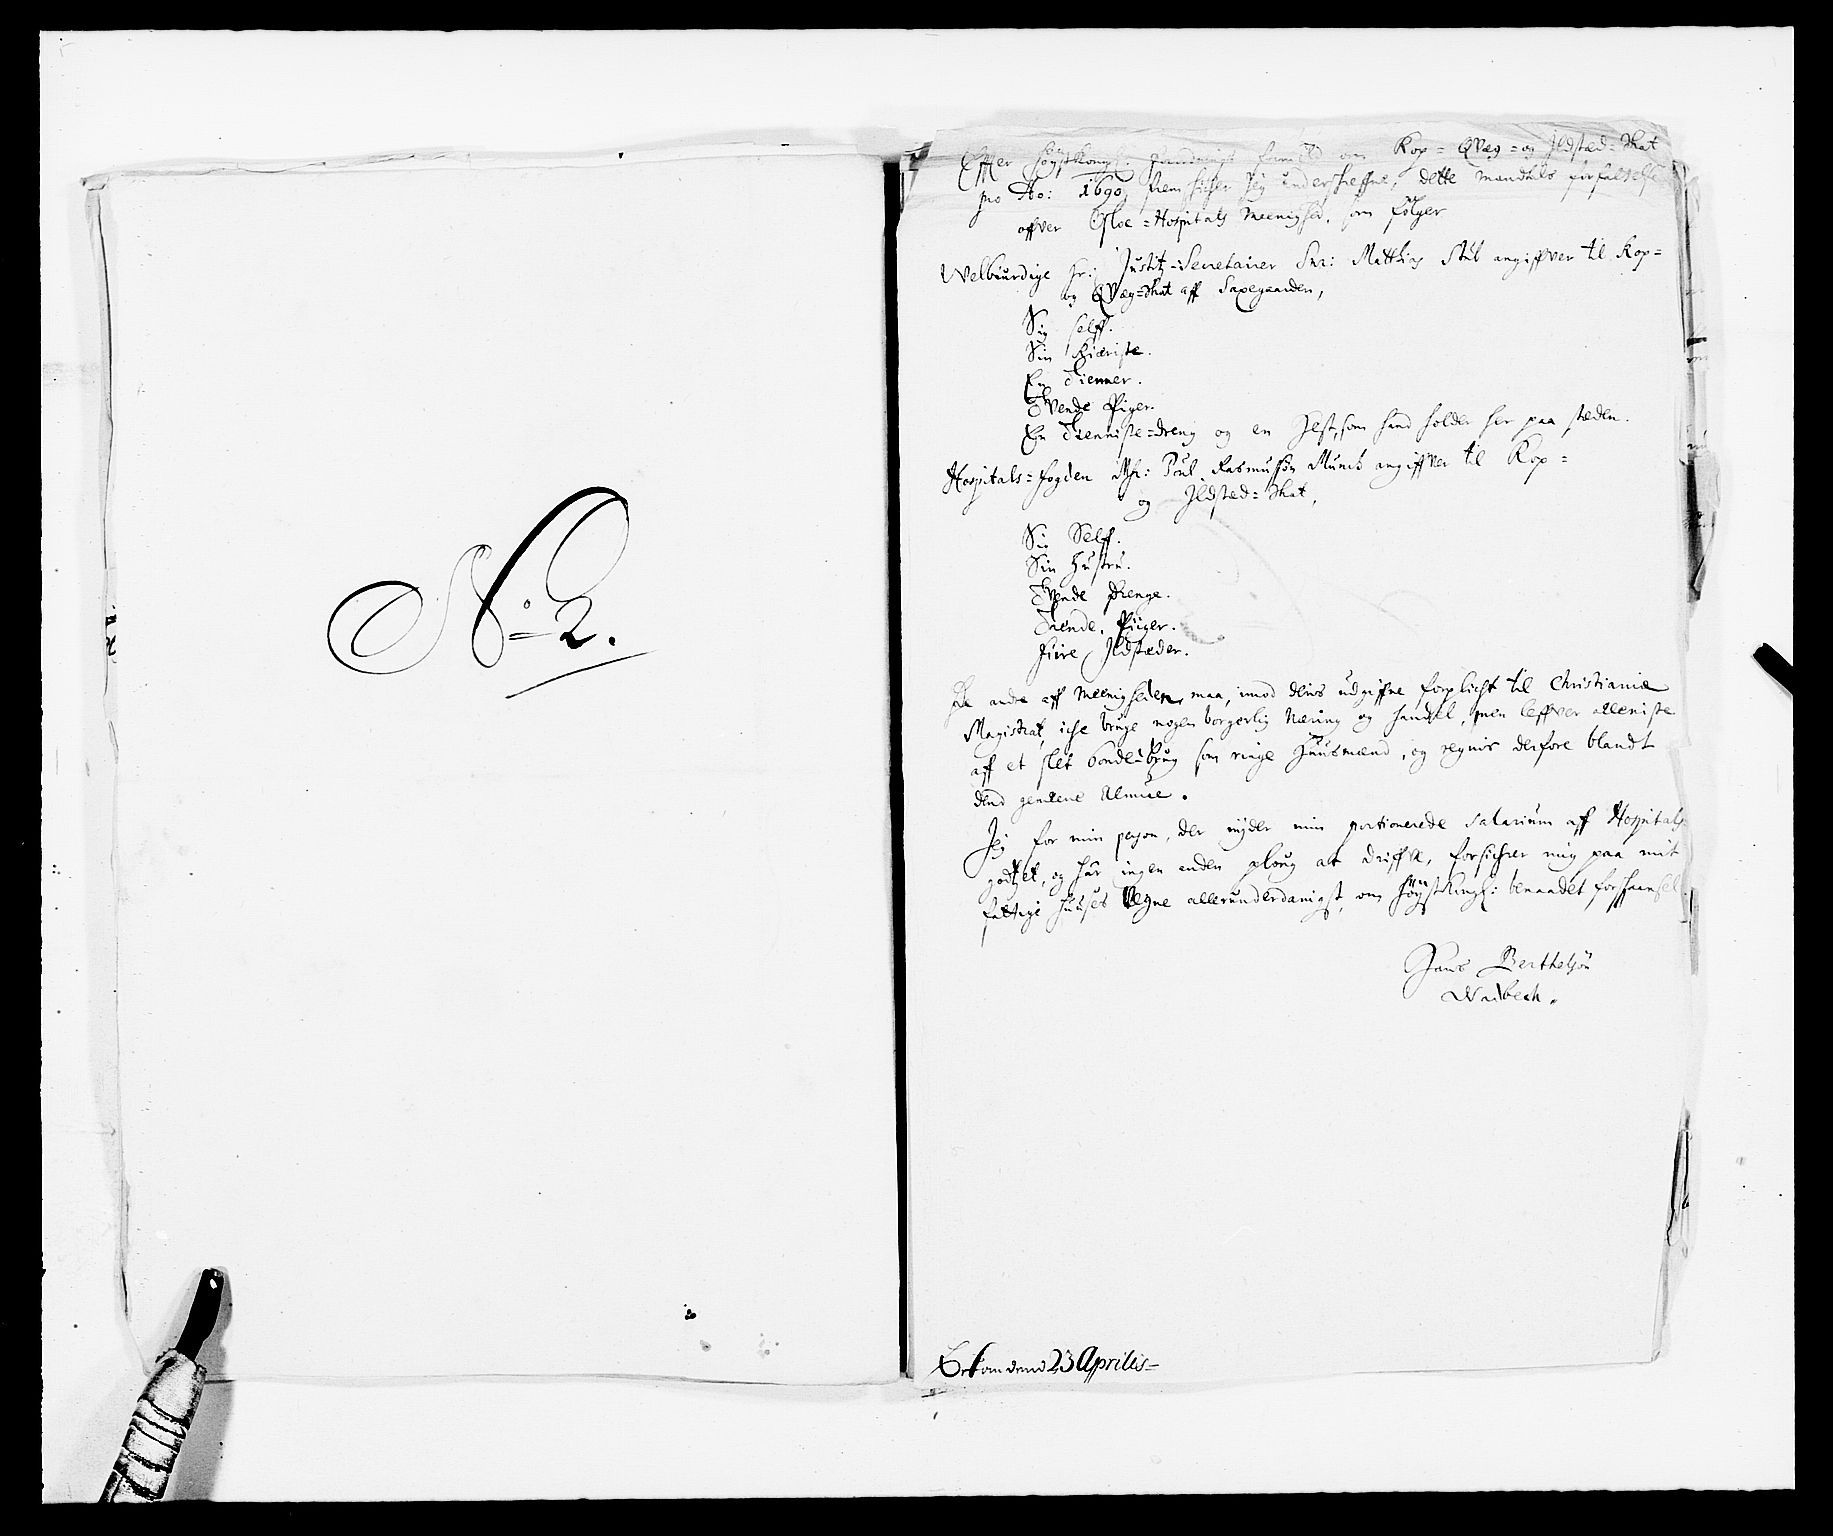 No 2.
Effter Høyst Kongl: om Kop= Qvæg= og Jldsted=Skat
pro Ao: 1690, Jeg underskreffne, dette mandtals forfattelse
offver Osloe=Hospitals Meenighed, som følger
Welbiurdige Hr: Justitz=Secretairer Snr: Matthias Stub angiffver til Kop=
og Qvæg=Skat aff Saxegaarden,
Sig self.
Sin Kiæriste.
En Tienner.
Tvende Piger.
En Tienniste=dreng og en Hest, som hand holder her paa stæden.
Hospitals=fogden Poul Rasmussøn Munch angiffver til Kop=
og Jldsted=Skat,
Sig Self.
Sin Hustru.
Tvende Drenge.
Tvende Piiger.
fiire Jldstæder.
De andre aff Meenigheden, maa, imod deris udgiffne forplicht til Christianiæ
Magistrat, iche bruge nogen borgerlig Næring og handel, men leffver alleniste
aff et slet bonde=brug som ringe Huusmænd, og regnis derfore blandt
dend gemeene Almue.
Jeg for min person, der nyder min portionerede Salarium aff Hospitals
godtzet, og har ingen anden ploug at driffve, forsichrer mig paa mit
fattige Huuses Vegne allerunderdanigst, om Høyst Kongl: benaadet forskaansel.
Hans Berthelsøn
Wadbech.
Bekom dend 23 Aprilis=